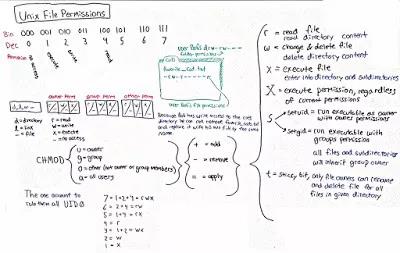 Unix File Permissions
Bin 000 001 010 011 100 101 110 111
Dec 0 1 2 3 4 5 6 7
no access
execute
write
read
user
favorite_cat.txt
d, l, -
owner perm
group perm
other perm
r/- w/- x/-
r/- w/- x/-
r/- w/- x/-
d = directory
l = link
- = file
r = read
w = write
x = execute
- = no access
Because Bob has write access to the cats
directory he can
and replace it with his own file by the same
name.
CHMOD
u = owner
g = group
o = other (not owner or group members)
a = all users
+ = add
- = remove
= = apply
The one account to
rule them all UID 0
7 = 1+2+4 = rwx
6 = 2+4 = rw
5 = 1+4 = rx
4 = r
3 = 1+2 = wx
2 = w
1 = x
r = read file
read directory content
w = change & delete file
delete directory content
x = execute file
enter into directory and subdirectories
X = execute permission, regardless
of current permissions
s
setuid = run executable as owner
with owner permissions
setgid = run executable with
groups permission
all files and subdirectories
will inherit group owner
t = sticky bit, only file owners can rename
and delete file for all
files in given directory